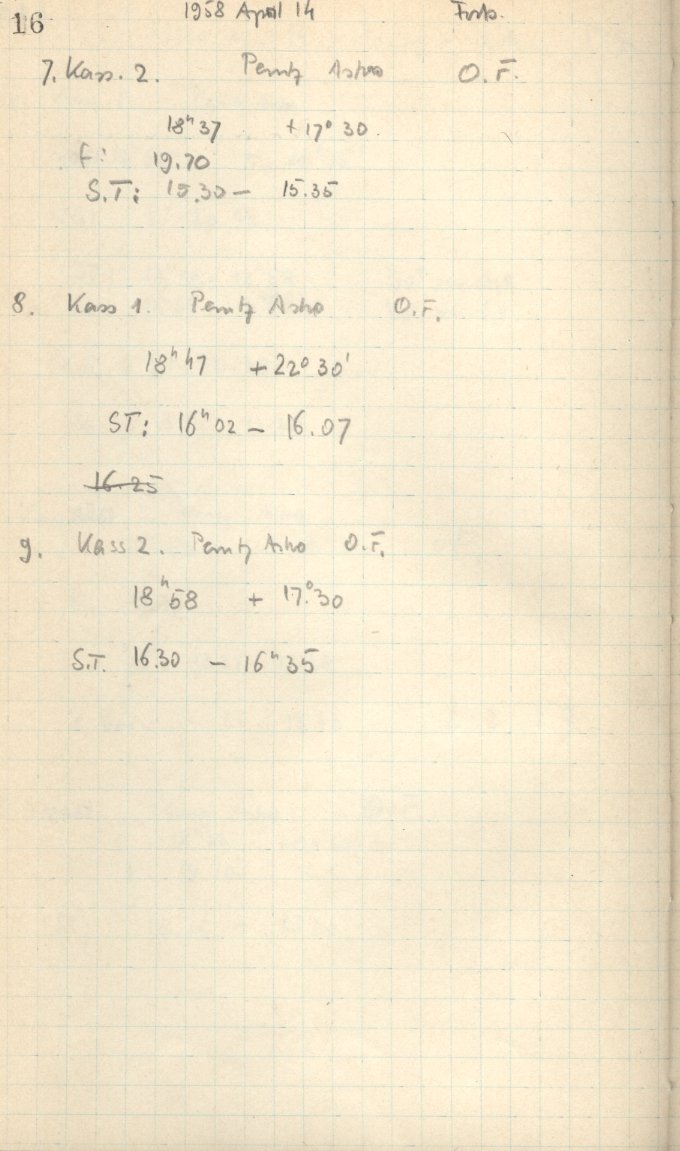 16 1958 April 14 Forts.
7. Kass. 2. Perutz Astro O.F.
18ʰ37 +17° 30
f: 19.70
S.T: 15.30 — 15.35
8. Kass 1. Perutz Astro O.F.
18ʰ47 +22° 30'
ST: 16ʰ02 — 16.07
16.25
9. Kass 2. Perutz Astro O.F.
18ʰ58 + 17.°30
S.T. 16.30 — 16ʰ35